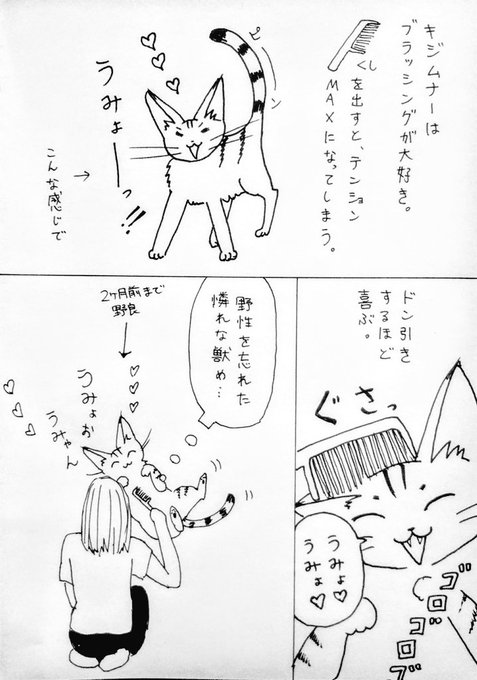 キジムナーは
ブラッシングが大好き。
くし
を出すと、テンション
MAXになってしまう。
ピーン
うみょーっ!!
こんな感じで
ドン引き
するほど
喜ぶ。
ぐさっ
うみょ
うみょ
ゴロゴロゴロ
野性を忘れた
憐れな獣め…
2ヶ月前まで
野良
うみょお
うみゃん